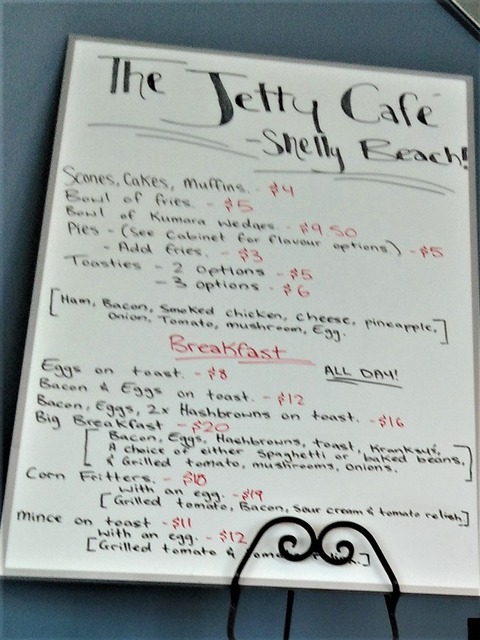 The Jetty Café
-Shelly Beach!
Scones, Cakes, Muffins. - $4
Bowl of fries. - $5
Bowl of Kumara Wedges. - $9 50
Pies - (See Cabinet for flavour options) - $5
- Add fries. - $3
Toasties - 2 options - $5
- 3 options - $6
[Ham, Bacon, Smoked chicken, cheese, pineapple,
Onion, Tomato, mushroom, Egg.]
Breakfast
Eggs on toast. - $8
ALL DAY!
Bacon & Eggs on toast. - $12
Bacon, Eggs, 2x Hashbrowns on toast. - $16
Big Breakfast - $20
[Bacon, Eggs, Hashbrowns, toast,
A choice of either Spaghetti or baked beans,
& Grilled tomato, mushrooms, onions.]
Corn Fritters. -
with an egg. - $19
[Grilled tomato, Bacon, Sour cream & tomato relish]
Mince on toast - $11
with an egg. - $12
[Grilled tomato &